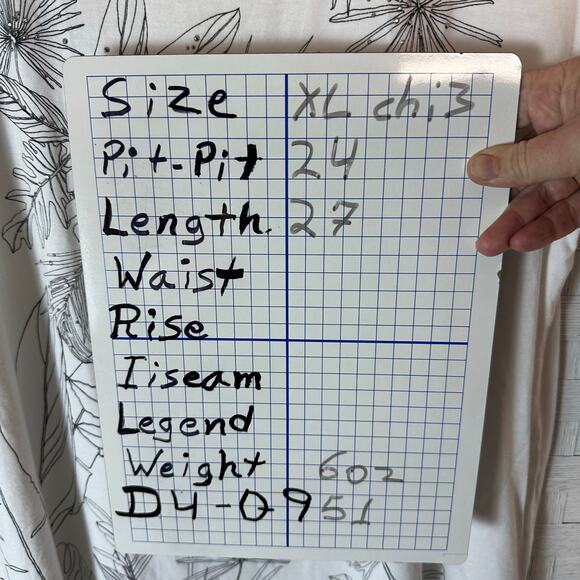 Size XL chi3
Pit-Pit 24
Length. 27
Waist
Rise
Iiseam
Legend
Weight 6oz
D4-0951